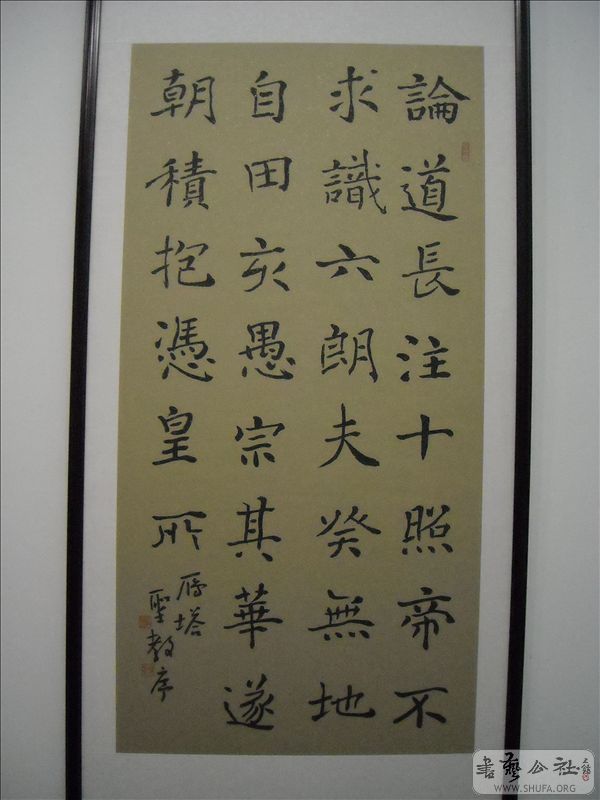 論道長注十照帝不
求識六朗夫癸無地
自田亥愚宗其華遂
朝積抱憑皇所
雁塔
聖教序
書藝公社
WWW.SHUFA.ORG